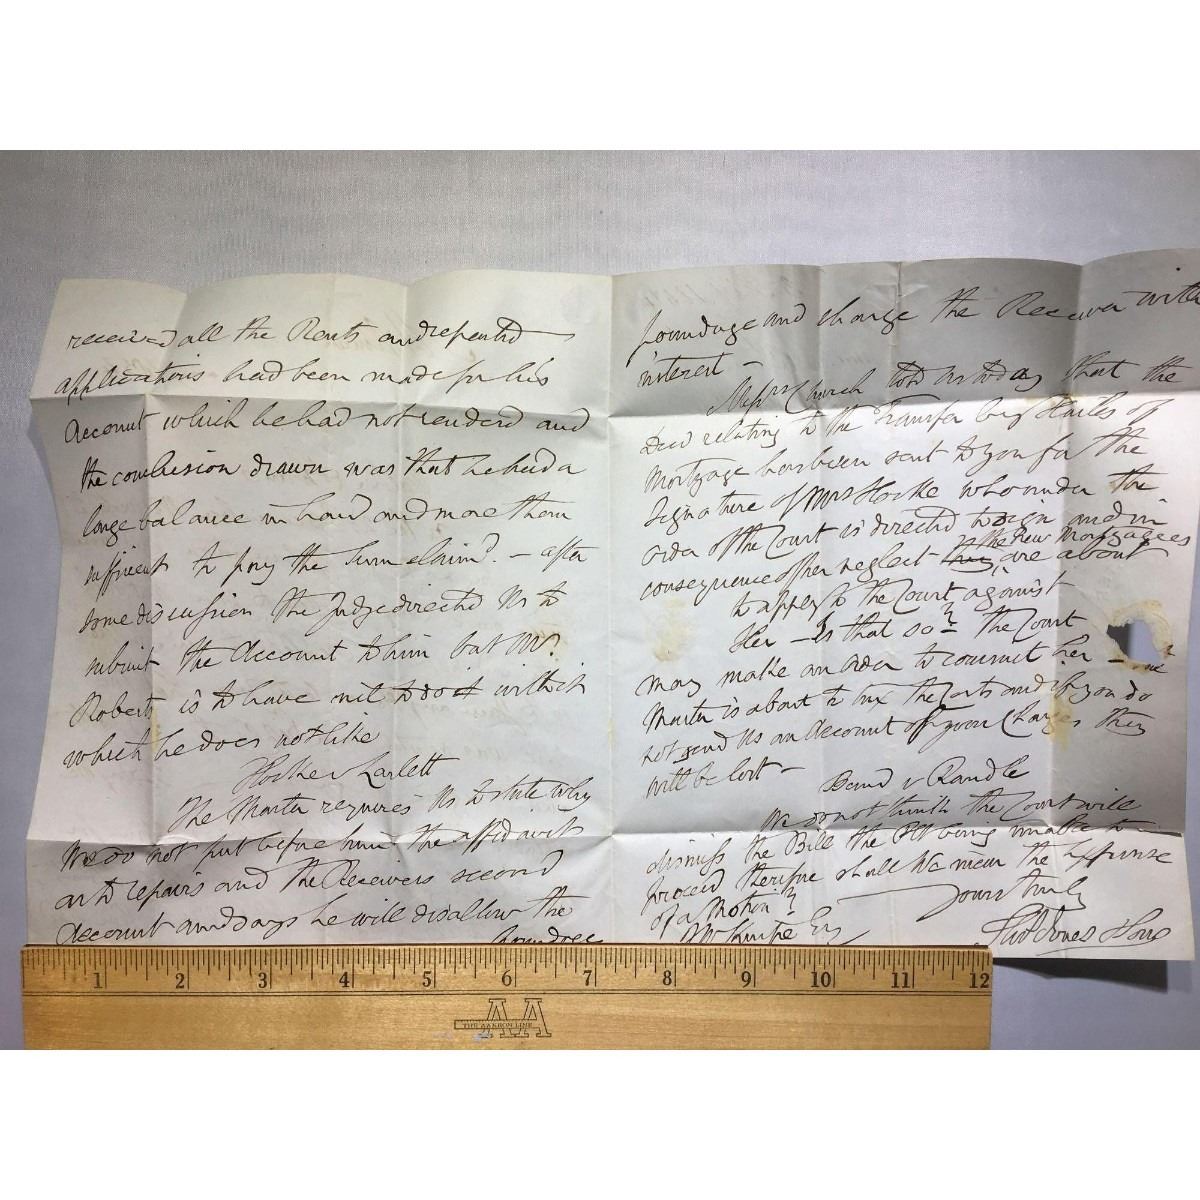 received all the Rents and repeated
applications had been made for his
Account which he had not renderd and
the conclusion drawn was that he had a
large balance in hand and more than
sufficient to pay the Sum claimd. - after
some discussion the Judge directed us to
submit the Account to him but Mr.
Roberts is to have nil to do it with it
which he does not like
Hooke v
The Master requires us to state why
We do not put before him the affidavit
as to repairs and the Receivers second
Account and says he will disallow the
Poundage
poundage and charge the Receiver with
interest -
Messrs Church told us to day that the
Deed relating to the Transfer by Stailes of
Mortgage has been sent to you for the
signature of Mrs Hooke who under the
order of the Court is directed to sign and in
consequence of her neglect they the New Mortgagees are about
to apply to the Court against
Her - Is that so? The Court
may make an order to commit her - The
Master is about to tax the Costs and if you do
not send us an Account of your Charges they
will be lost -
Band v Randle
We do not think the Court will
dismiss the Bill the Plt being unable to
proceed therefore shall We incur the expense
of a Motion?
Yours truly
Esq
Jones & Sons
1 2 3 4 5 6 7 8 9 10 11 12
THE AKRON LINE